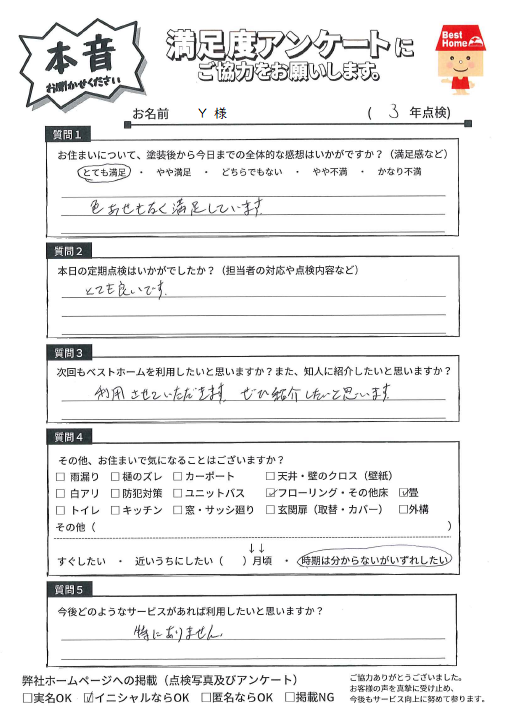 本音
お聞かせください
満足度アンケートに
ご協力をお願いします。
Best
Home
お名前 Y 様 ( 3 年点検)
質問1
お住まいについて、塗装後から今日までの全体的な感想はいかがですか？（満足感など）
とても満足 ・ やや満足 ・ どちらでもない ・ やや不満 ・ かなり不満
色あせもなく満足しています
質問2
本日の定期点検はいかがでしたか？（担当者の対応や点検内容など）
とても良いです。
質問3
次回もベストホームを利用したいと思いますか？また、知人に紹介したいと思いますか？
利用させていただきます ぜひ紹介したいと思います
質問4
その他、お住まいで気になることはございますか？
□ 雨漏り □ 樋のズレ □ カーポート □ 天井・壁のクロス（壁紙）
□ 白アリ □ 防犯対策 □ ユニットバス ☑ フローリング・その他床 ☑ 畳
□ トイレ □ キッチン □ 窓・サッシ廻り □ 玄関扉（取替・カバー） □ 外構
その他（ ）
↓↓
すぐしたい ・ 近いうちにしたい（ ）月頃 ・ 時期は分からないがいずれしたい
質問5
今後どのようなサービスがあれば利用したいと思いますか？
特にありません。
弊社ホームページへの掲載（点検写真及びアンケート）
□実名OK ☑イニシャルならOK □匿名ならOK □掲載NG
ご協力ありがとうございました。
お客様の声を真摯に受け止め、
今後もサービス向上に努めて参ります。